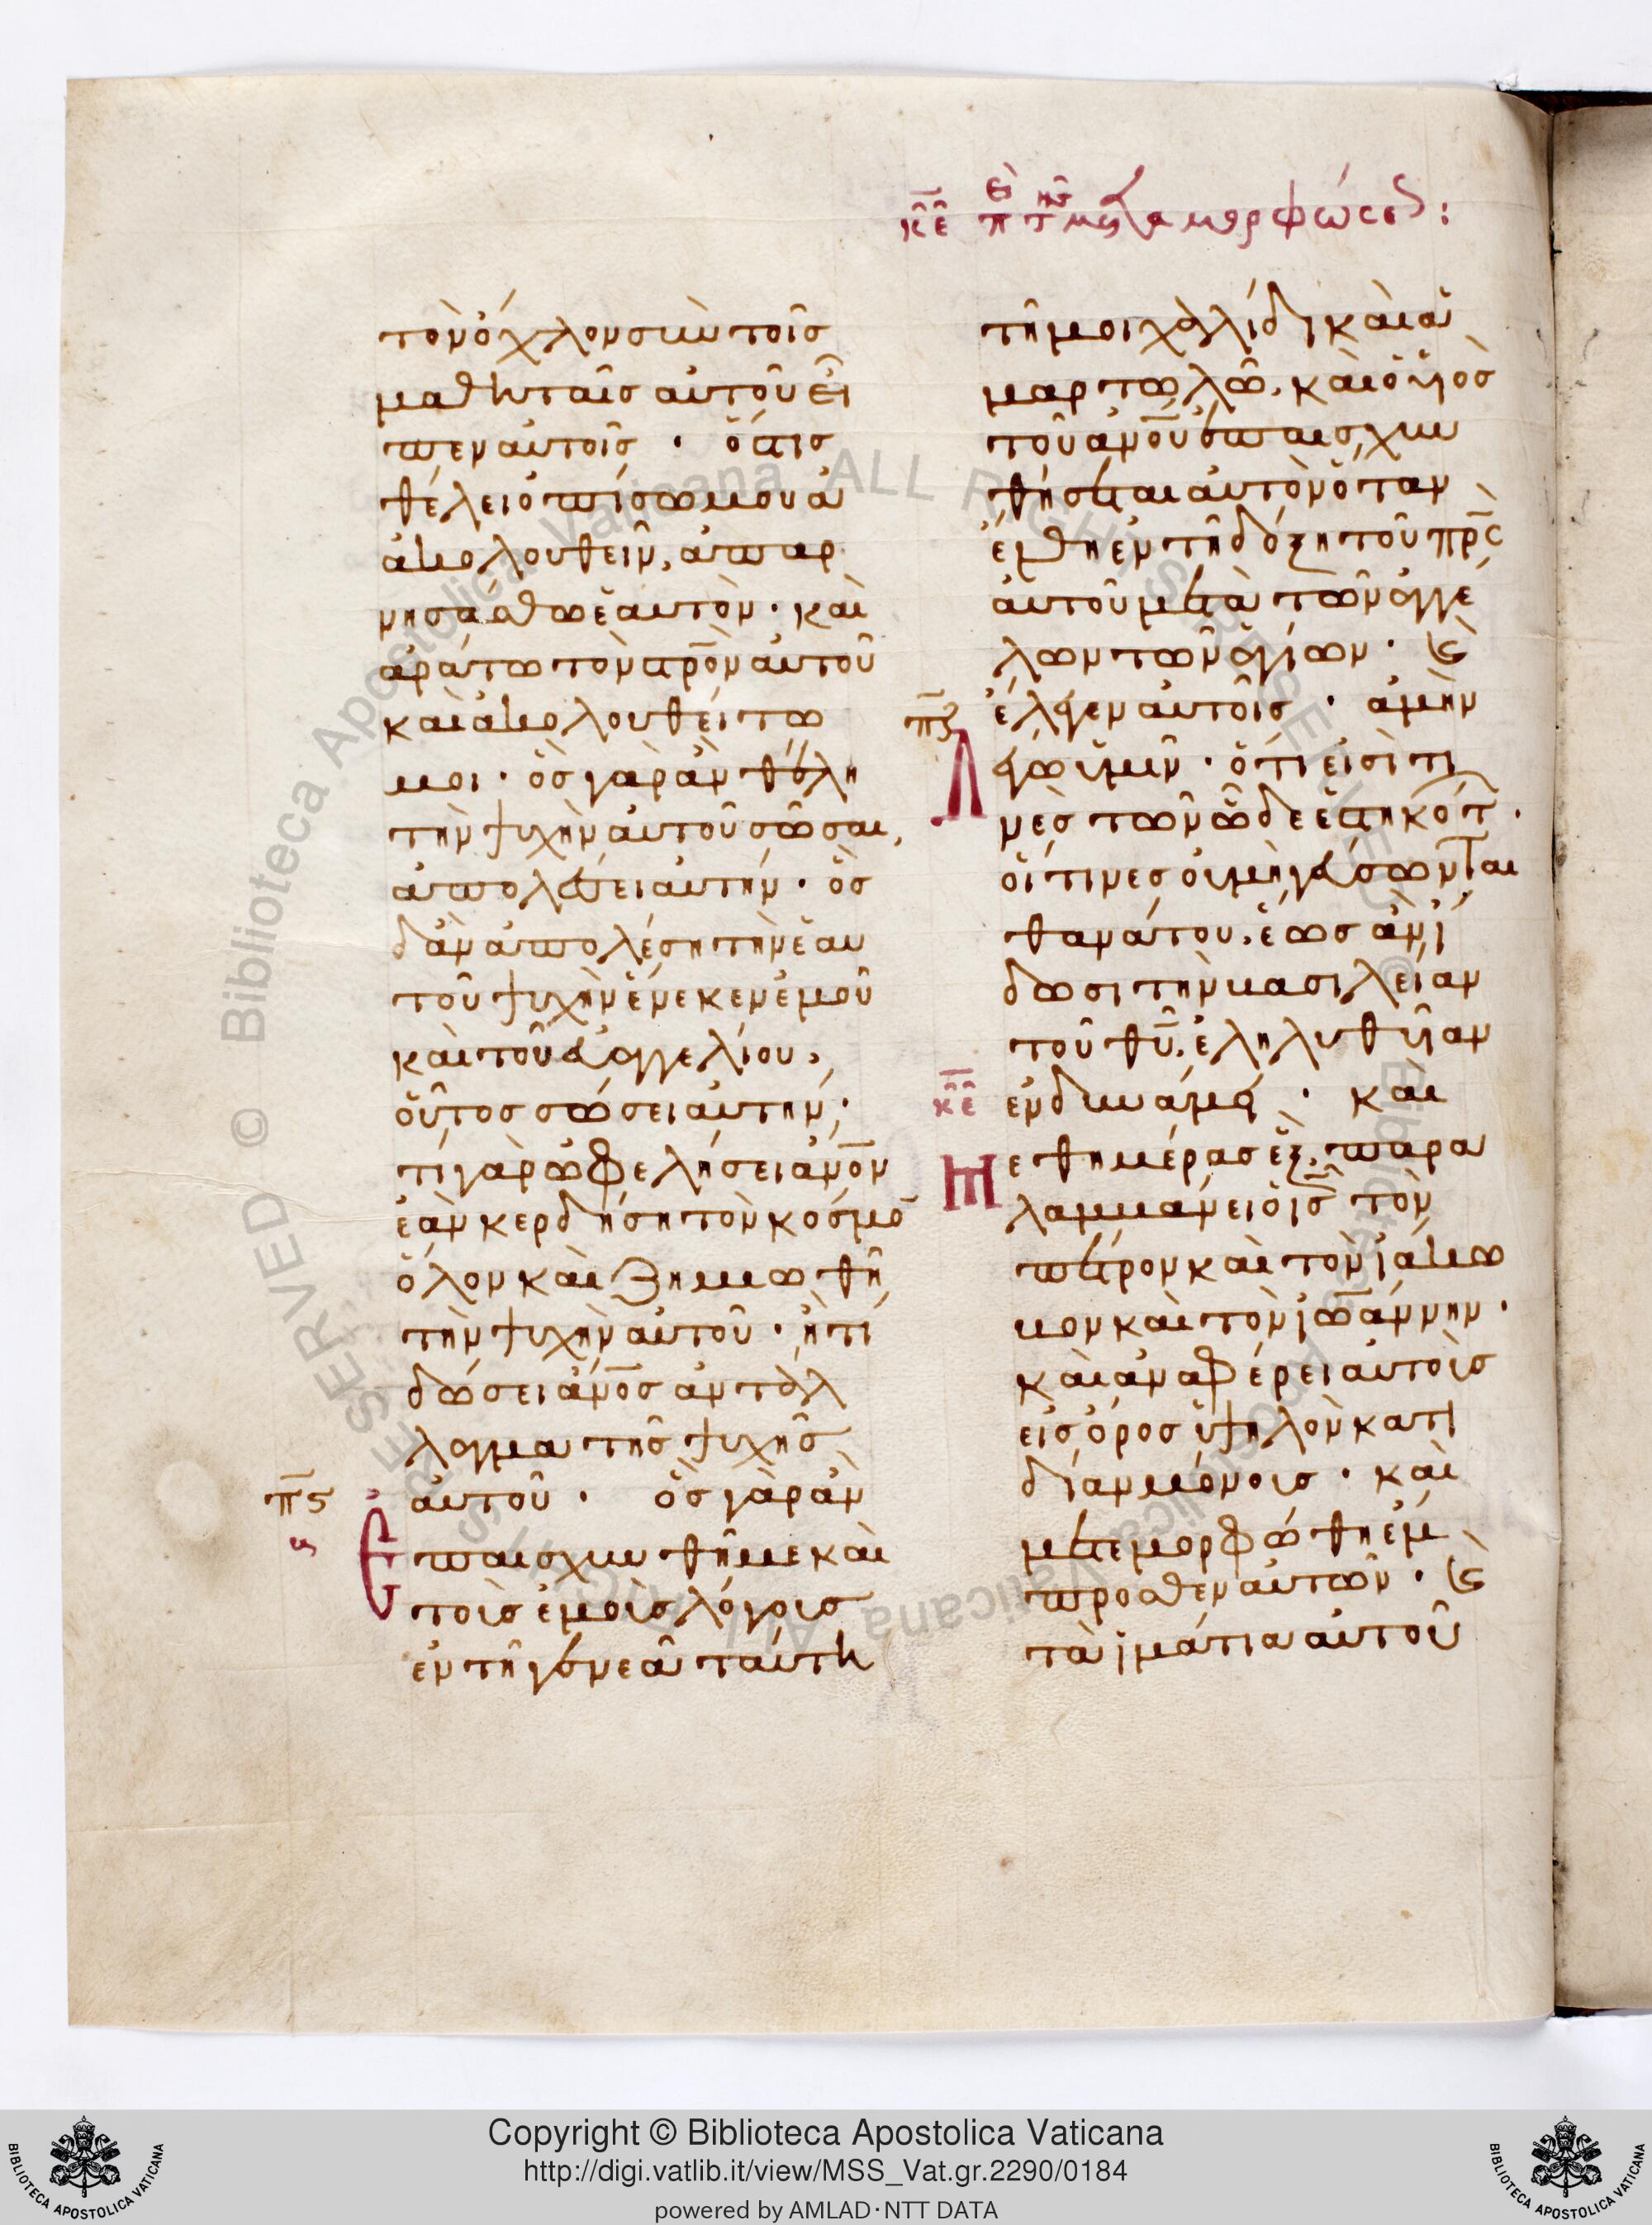 κε περὶ τῆς μεταμορφώσεως:
τὸν ὄχλον σὺν τοῖς
μαθηταῖς αὐτοῦ εἶ
πεν αὐτοῖς · ὅστις
θέλει ὀπίσω μου ἀ
ἀκολουθεῖν, ἀπαρ
νησάσθω ἑαυτὸν · καὶ
ἀράτω τὸν σ̅ρ̅ο̅ν αὐτοῦ
καὶ ἀκολουθείτω
μοι · ὃς γὰρ ἂν θέλη
τὴν ψυχὴν αὐτοῦ σῶσαι,
ἀπολέσει αὐτήν · ὃς
δἂν ἀπολέση τὴν ἑαυ
τοῦ ψυχὴν ἕνεκεν ἐμοῦ
καὶ τοῦ εὐαγγελίου,
οὗτος σώσει αὐτήν ·
τί γὰρ ὠφελήσει α̅ν̅ο̅ν
ἐὰν κερδήση τὸν κόσμο̅
ὅλον καὶ ζημιωθῆ
τὴν ψυχὴν αὐτοῦ · ἢ τί
δώσει α̅ν̅ο̅ς ἀντάλ
λαγμα τῆς ψυχῆς
πϛ αὐτοῦ · ὃς γὰρ ἂν
Ἐπαισχυνθῆ με καὶ
τοὺς ἐμοὺς λόγους
ἐν τῆ γενεᾶ ταύτη
τῆ μοιχαλίδι καὶ ἁ
μαρτωλῶ, καὶ ὁ υἱὸς
τοῦ α̅ν̅ο̅υ ἐπαισχυν
θήσεται αὐτὸν ὅταν
ἔλθη ἐν τῆ δόξη τοῦ π̅ρ̅ς̅
αὐτοῦ μετὰ τῶν ἀγγέ
λων τῶν ἁγίων · καὶ
πζ ἔλεγεν αὐτοῖς · ἀμὴν
Λέγω ὑμῖν · ὅτι εἰσί τι
νὲς τῶν ὧδε ἑστηκότ̅ ·
οἵτινες οὐ μὴ γεύσωνται
θανάτου, ἕως ἂν ἴ
δωσι τὴν βασιλείαν
τοῦ θ̅υ̅, ἐληλυθυῖαν
κε ἐν δυνάμει · καὶ
Μεθ ἡμέρας ἓξ, παρα
λαμβάνει ὁ ι̅ς̅ τὸν
πέτρον καὶ τὸν ἰάκω
βον καὶ τὸν ἰωάννην ·
καὶ ἀναφέρει αὐτοὺς
εἰς ὄρος ὑψηλὸν κατ ἰ
δίαν μόνους · καὶ
μετεμορφώθη ἔμ
προσθεν αὐτῶν · καὶ
τὰ ἱμάτια αὐτοῦ
Copyright © Biblioteca Apostolica Vaticana
http://digi.vatlib.it/view/MSS_Vat.gr.2290/0184
powered by AMLAD·NTT DATA